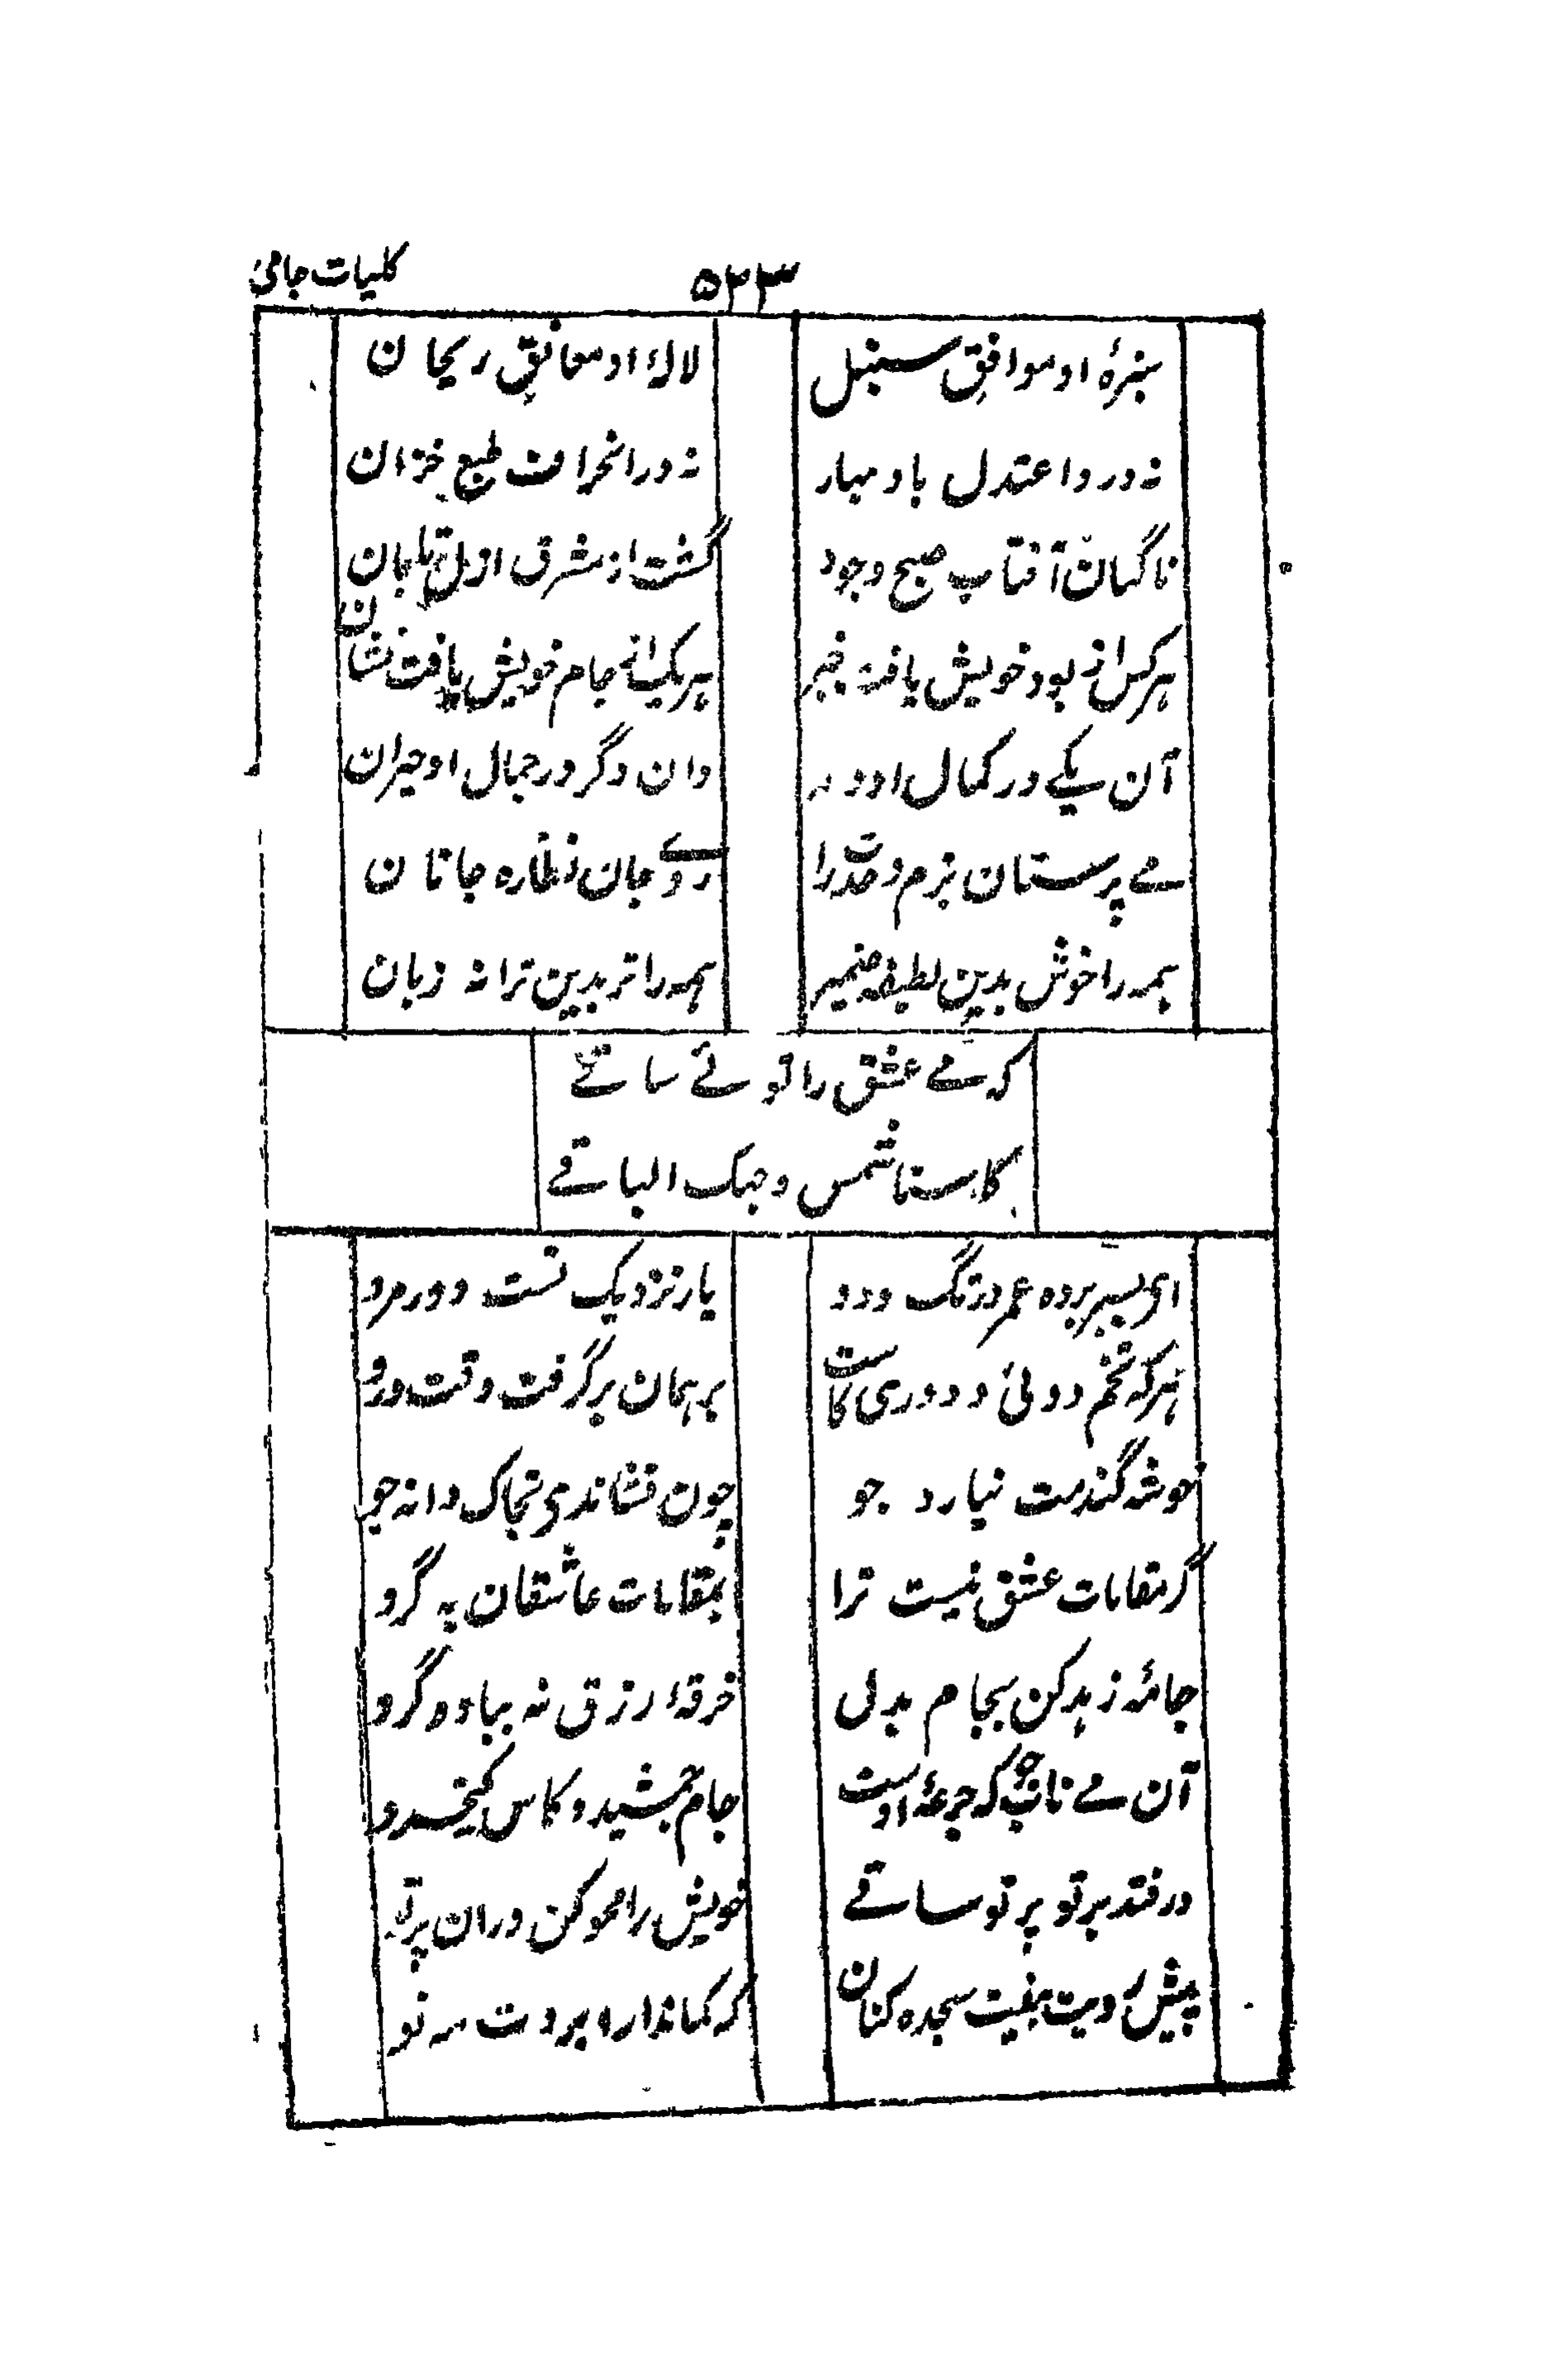 ۵۲۳ کلیات جامی
سبزۂ او موافقِ سنبل لالۂ او معانقِ ریحان
نه درو اعتدل باد بهار نه در انحراف طبع خزان
ناگهان آفتاب صبح وجود گشت از مشرق ازل تابان
هرکس از بود خویش یافت خبر هریک انجام خویش یافت نشان
آن یکے در کمال او واله وان دگر در جمال او حیران
مے پرستان بزم وحدت را روے جان نظاره جانان
همه را خوش بدین لطیفه ضمیر همه را تر بدین ترانه زبان
که مے عشق را توئے ساقے
کاسنا شمس وجهک الباقے
ای بسر برده عمر در تگ ودو یار نزدیک تست دور مرو
هرکه تخم دوئی و دوری کاشت بر همان برگرفت وقت درو
خوشه گندمت نیارد جو چون فشاندی بخاک دانه جو
گر مقامات عشق نیست ترا بمقامات عاشقان به گرو
جامۂ زهد کن بجام بدل خرقۂ ارزق نه بباده گرو
آن مے ناب جو که جرعۂ اوست جام جمشید و کاس کیخسرو
درفتد بر تو پرتو ساقے خویش را محو کن دران پرتو
پیش رویت بنفیت سجده کنان که کماندار ابروت مه نو